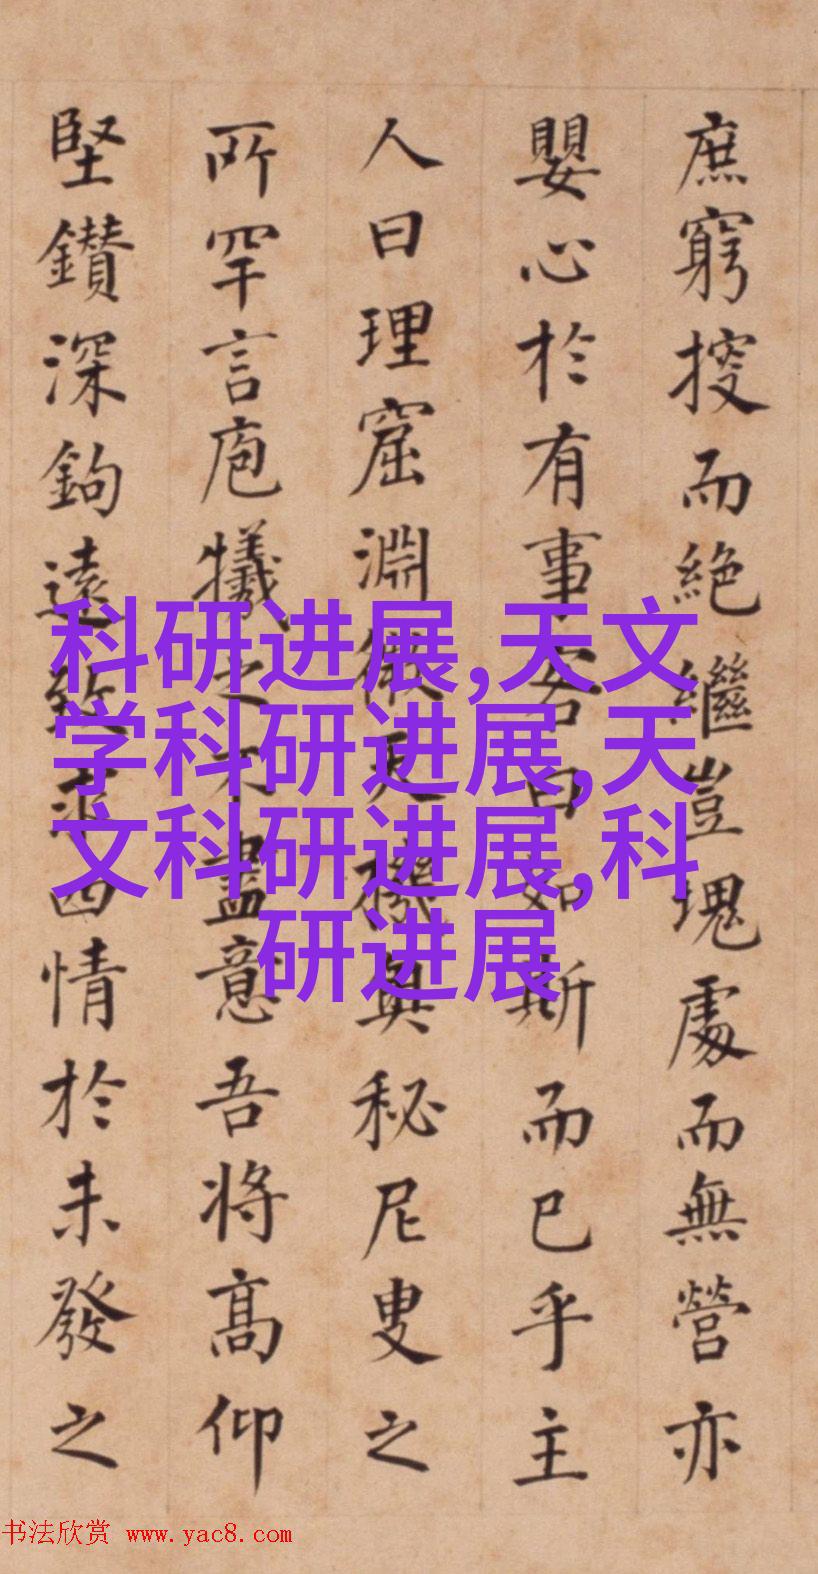 庶窮而絕繼豈塊處而無營亦
嬰心於有事客曰如斯而已乎主
人曰理窟淵微天機奧秘尼叟之
所罕言庖犧之不盡意吾將高仰
堅鑽深鉤遠致四情於未發之
科研进展,天文
学科研进展,天
文科研进展,科
研进展
书法欣赏 www.yac8.com